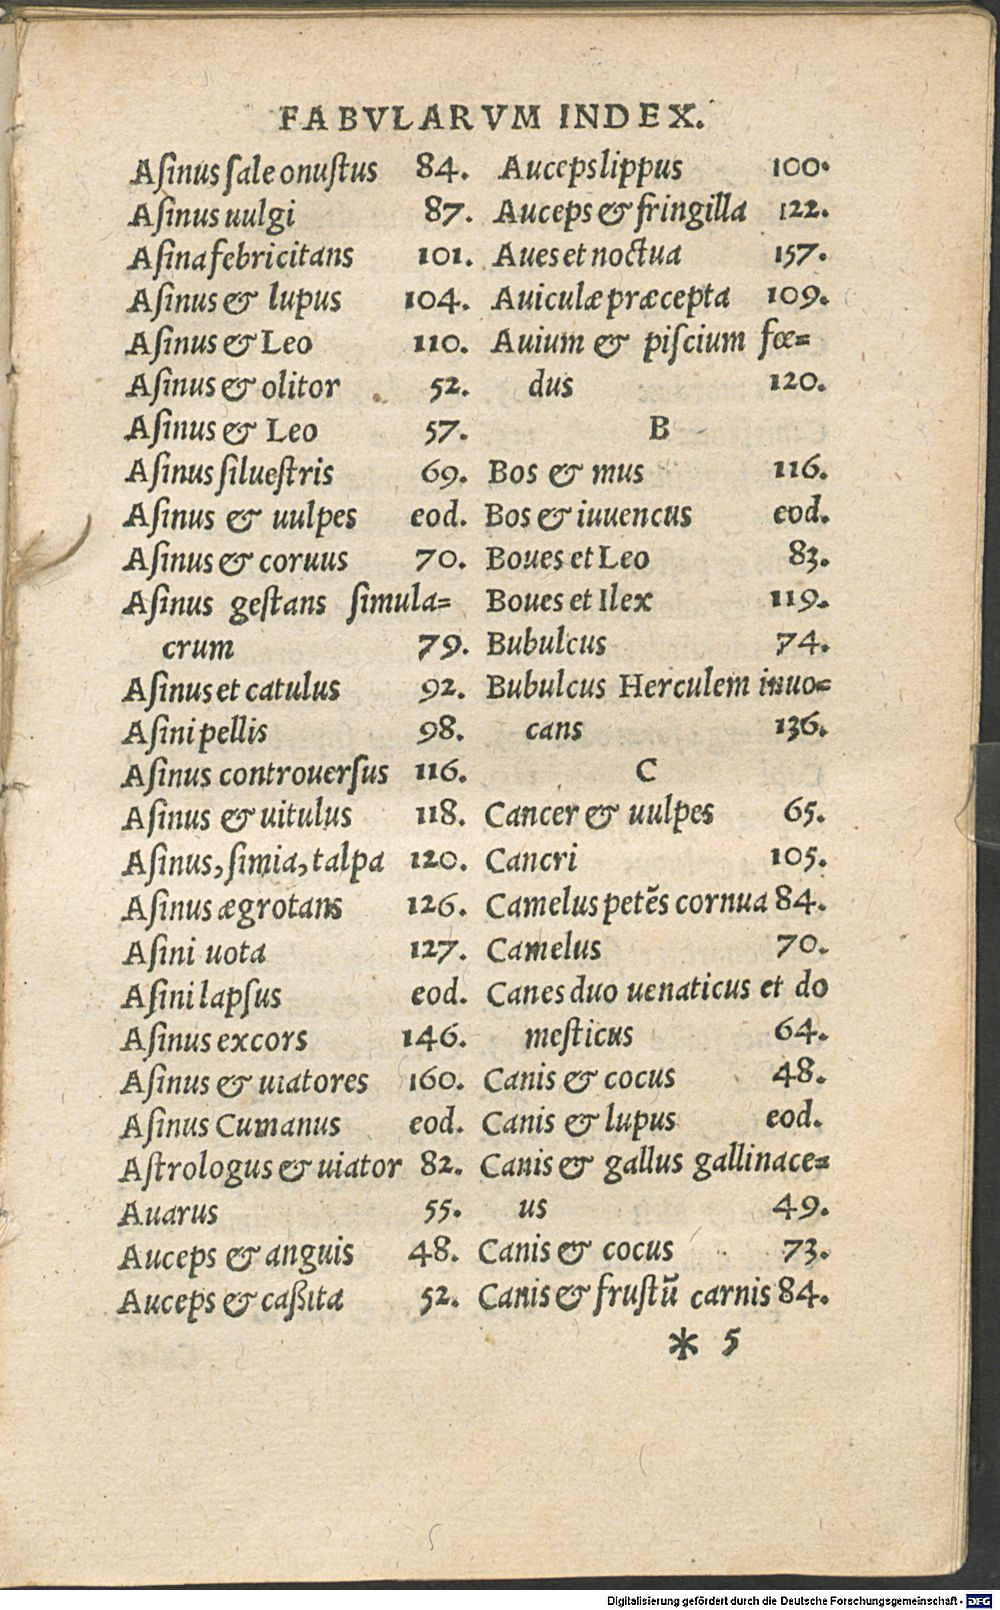 FABVLARVM INDEX.
Aſinus ſale onuſtus 84.
Aſinus uulgi 87.
Aſina febricitans 101.
Aſinus & lupus 104.
Aſinus & Leo 110.
Aſinus & olitor 52.
Aſinus & Leo 57.
Aſinus ſilueſtris 69.
Aſinus & uulpes eod.
Aſinus & coruus 70.
Aſinus geſtans ſimula=
crum 79.
Aſinus et catulus 92.
Aſini pellis 98.
Aſinus controuerſus 116.
Aſinus & uitulus 118.
Aſinus, ſimia, talpa 120.
Aſinus ægrotans 126.
Aſini uota 127.
Aſini lapſus eod.
Aſinus excors 146.
Aſinus & uiatores 160.
Aſinus Cumanus eod.
Aſtrologus & uiator 82.
Auarus 55.
Auceps & anguis 48.
Auceps & caßita 52.
Auceps lippus 100.
Auceps & fringilla 122.
Aues et noctua 157.
Auiculæ præcepta 109.
Auium & piſcium fœ=
dus 120.
B
Bos & mus 116.
Bos & iuuencus eod.
Boues et Leo 83.
Boues et Ilex 119.
Bubulcus 74.
Bubulcus Herculem inuo=
cans 136.
C
Cancer & uulpes 65.
Cancri 105.
Camelus petẽs cornua 84.
Camelus 70.
Canes duo uenaticus et do
meſticus 64.
Canis & cocus 48.
Canis & lupus eod.
Canis & gallus gallinace=
us 49.
Canis & cocus 73.
Canis & fruſtũ carnis 84.
* 5
Digitalisierung gefördert durch die Deutsche Forschungsgemeinschaft - DFG